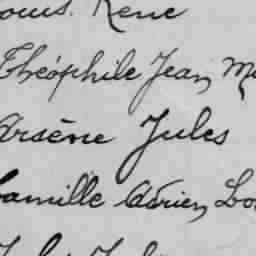 Louis René
Théophile Jean
Arsène Jules
Camille Adrien